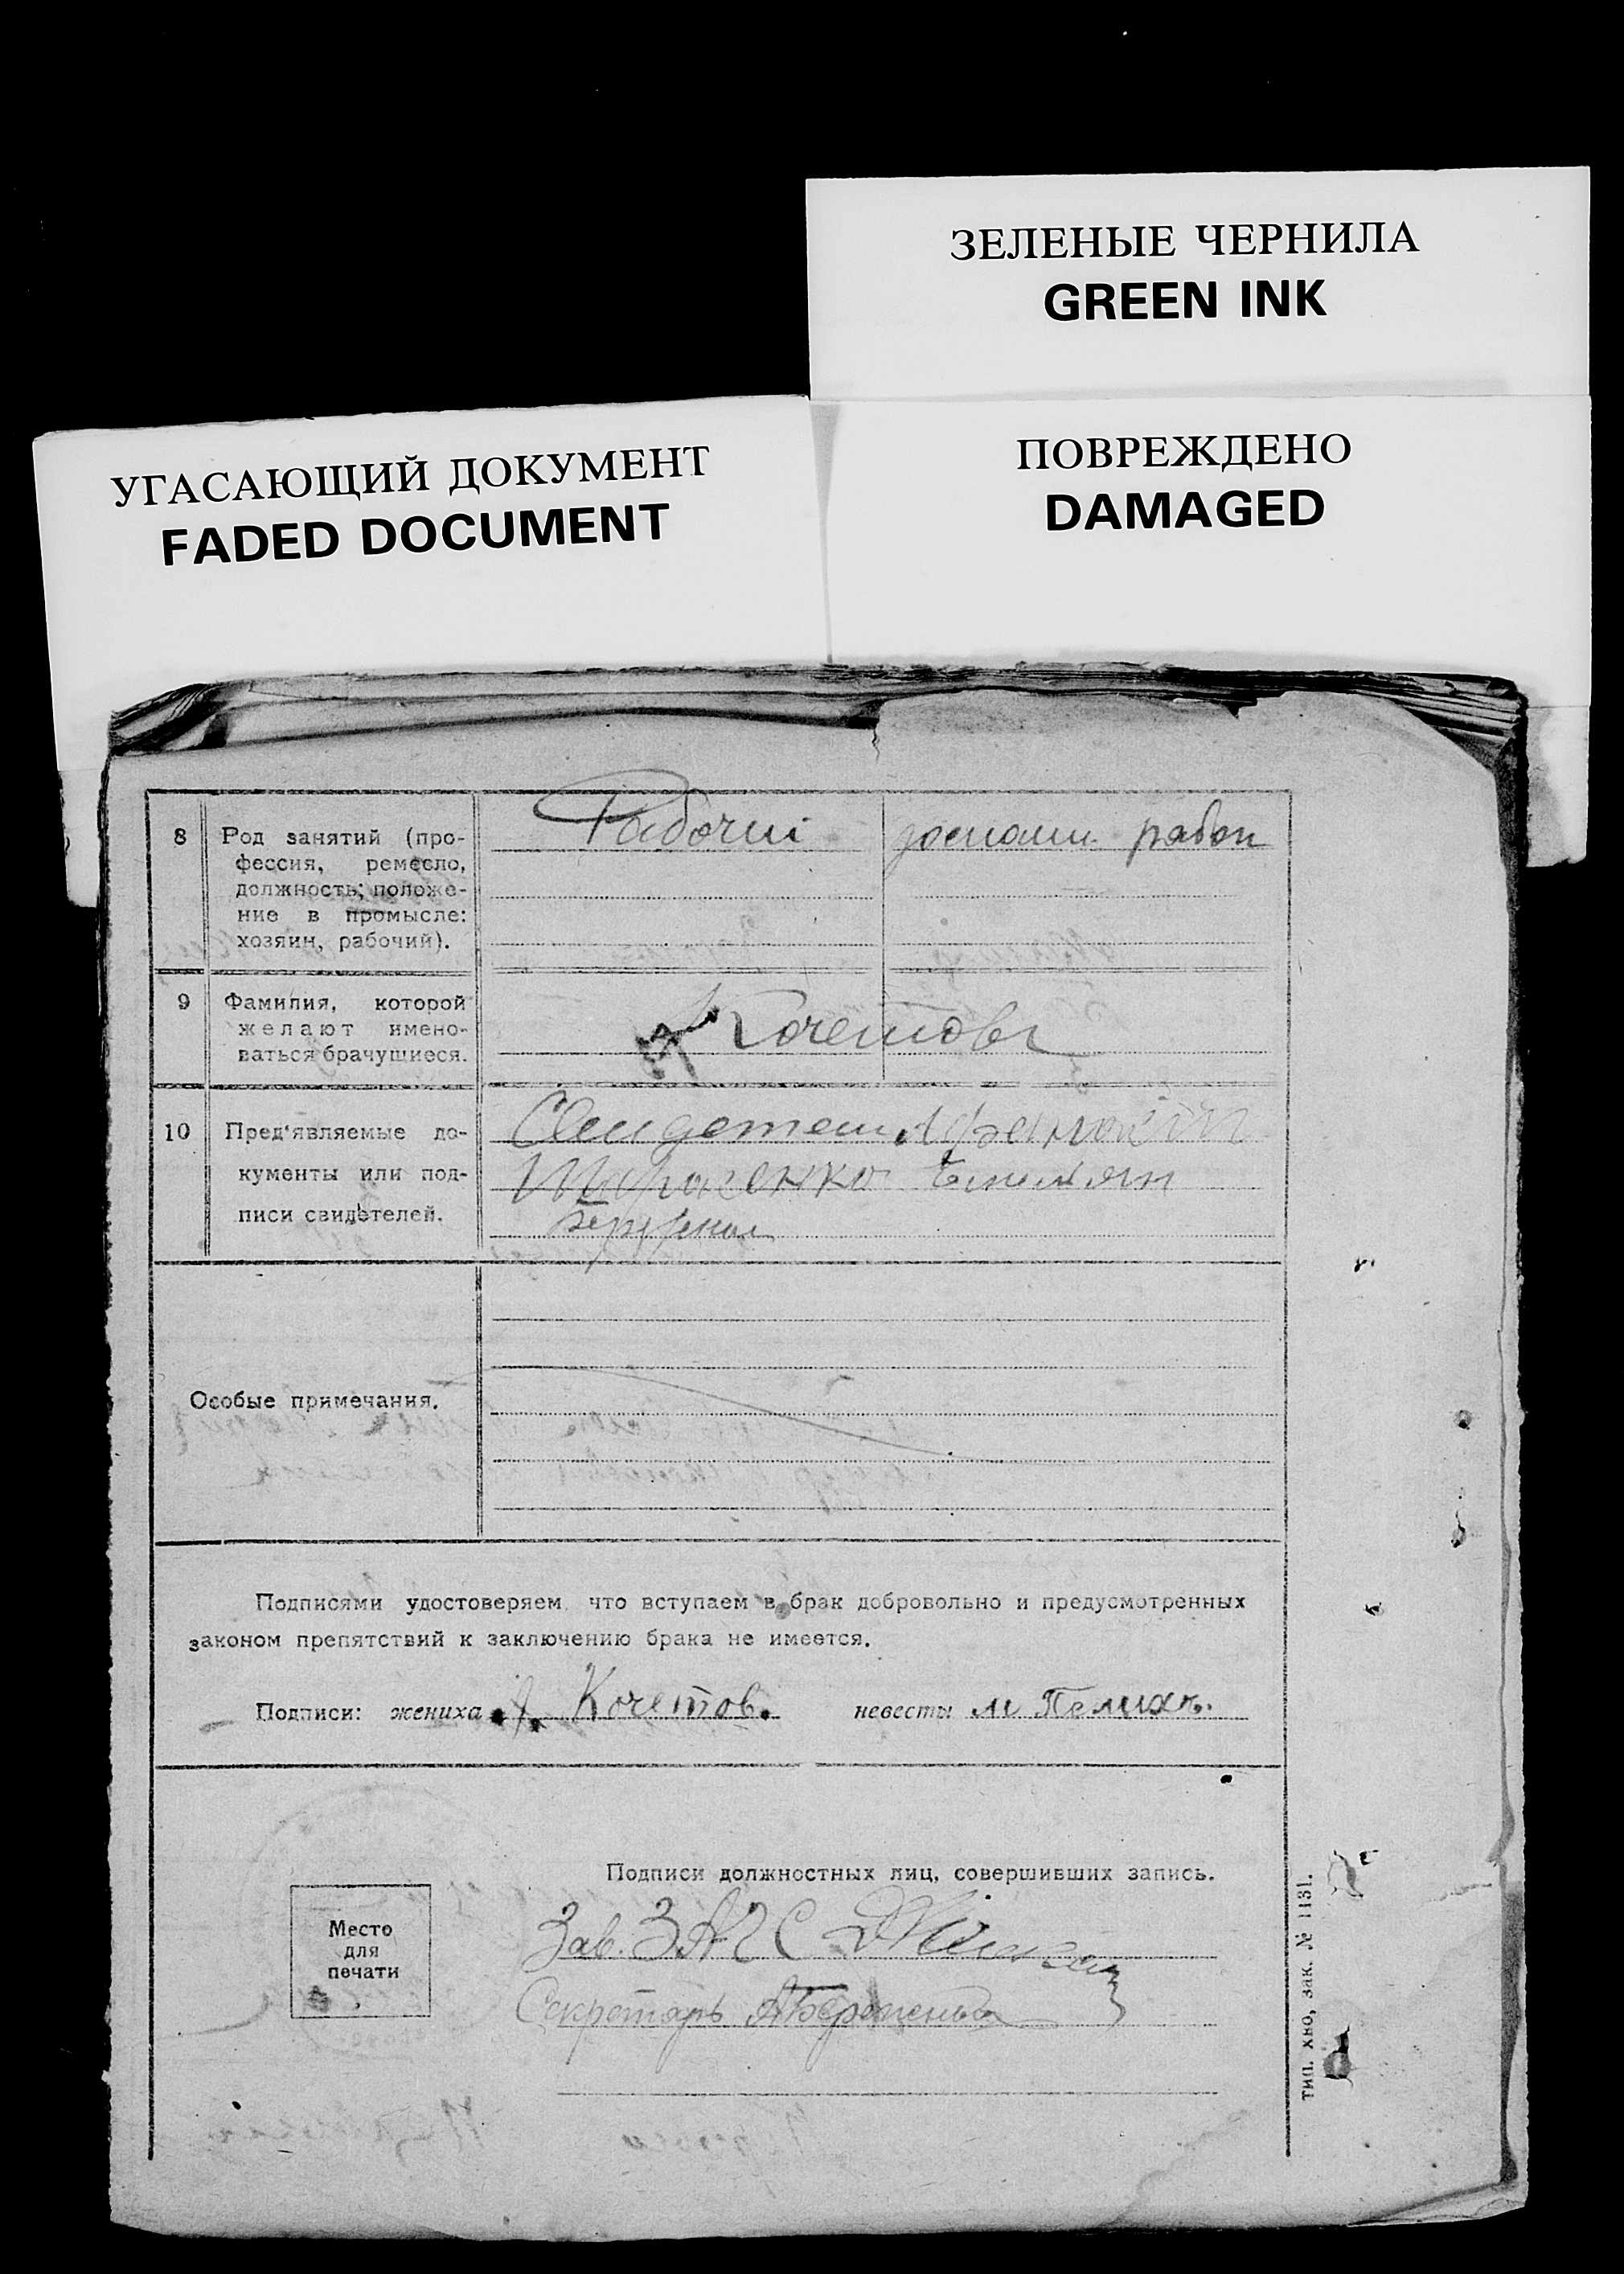 ЗЕЛЕНЫЕ ЧЕРНИЛА
GREEN INK
УГАСАЮЩИЙ ДОКУМЕНТ
FADED DOCUMENT
ПОВРЕЖДЕНО
DAMAGED
8 Род занятий (про-
фессия, ремесло,
должность; положе-
ние в промысле:
хозяин, рабочий).
Рабочий
рабоч
9 Фамилия, которой
желают имено-
ваться брачущиеся.
Кочетовы
10 Пред'являемые до-
кументы или под-
писи свидетелей.
Свидетели
Особые примечания.
Подписями удостоверяем что вступаем в брак добровольно и предусмотренных
законом препятствий к заключению брака не имеется.
Подписи: жениха Кочетов. невесты М Пелихъ.
Подписи должностных лиц, совершивших запись.
Место
для
печати
Зав. ЗАГС
Секретарь
тип. хво, зак. № 1131.